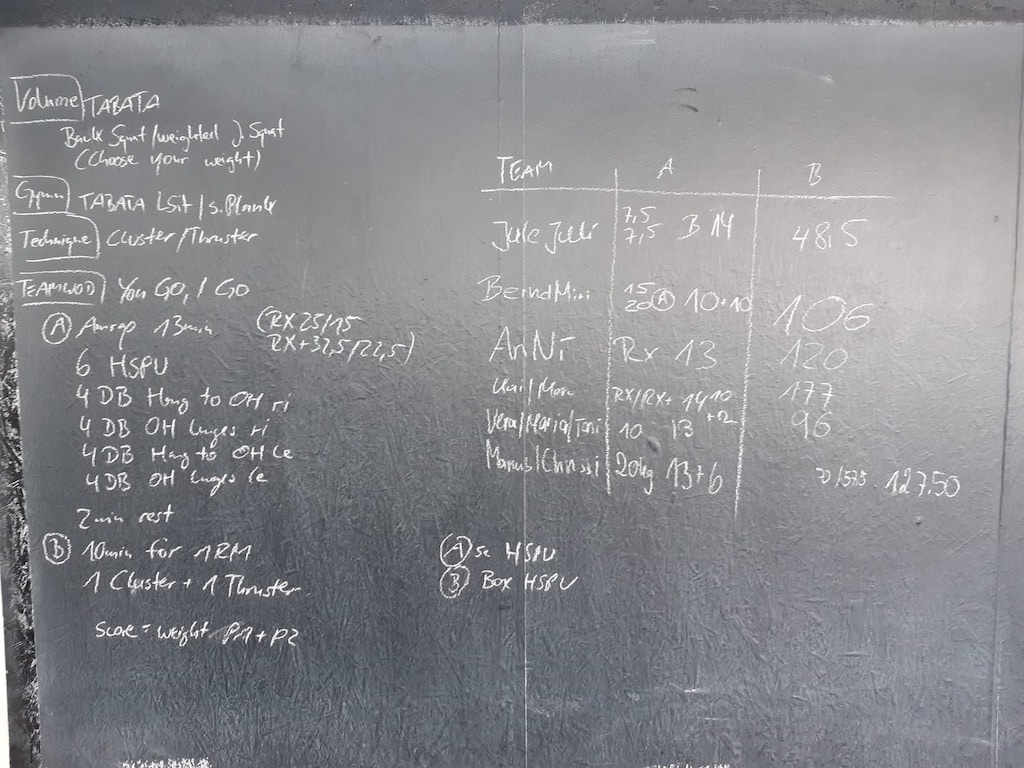 Volume TABATA
Back Squat/weighted J. Squat
(Choose your weight)
Gymn TABATA LSit / s.Plank
Technique Cluster/Thruster
TEAMWOD You GO, I GO
A Amrap 13min (RX 25/15
RX+ 32,5/22,5)
6 HSPU
4 DB Hang to OH ri
4 DB OH lunges ri
4 DB Hang to OH le
4 DB OH lunges le
2min rest
B 10min for 1RM
1 Cluster + 1 Thruster
Score = weight P1 + P2
TEAM A B
Jule Julli 7,5 7,5 B 14 48,5
Bernd Mini 15 20 A 10+10 106
AnNi Rx 13 120
Kai/Marc RX/RX+ 14+10 177
Vera/Maria/Toni 10 13 +12 96
20kg 13+6 70/57,5 127,50
A sc HSPU
B Box HSPU